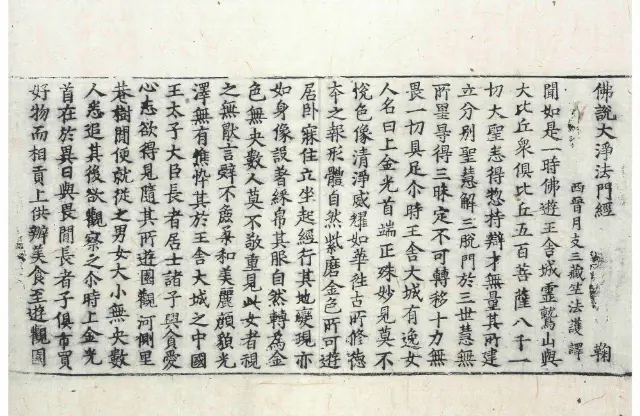 佛說大淨法門經 鞠
西晉月支三藏竺法護譯
聞如是一時佛遊王舍城靈鷲山與
大比丘衆俱比丘五百菩薩八千一
切大聖志得惣持辯才無量其所建
立分別聖慧解三脫門於三世慧無
所罣㝵得三昧定不可轉移十力無
畏一切具足尒時王舍大城有逸女
人名曰上金光首端正殊妙見莫不
悅色像清淨威耀如華往古所修德
本之報形體自然紫磨金色所可遊
居卧寐住立坐起經行其地變現亦
如身像設著綵帛其服自然轉爲金
色無央數人莫不敬重見此女者視
之無猒言辭不麁柔和美麗顔貌光
澤無有憔悴其於王舍大城之中國
王太子大臣長者居士諸子與貪愛
心志欲得見隨其所遊園觀河側里
巷樹閒便就從之男女大小無央數
人悉追其後欲觀察之尒時上金光
首在於異日與畏閒長者子俱市買
好物而相貢上供辦美食至遊觀園